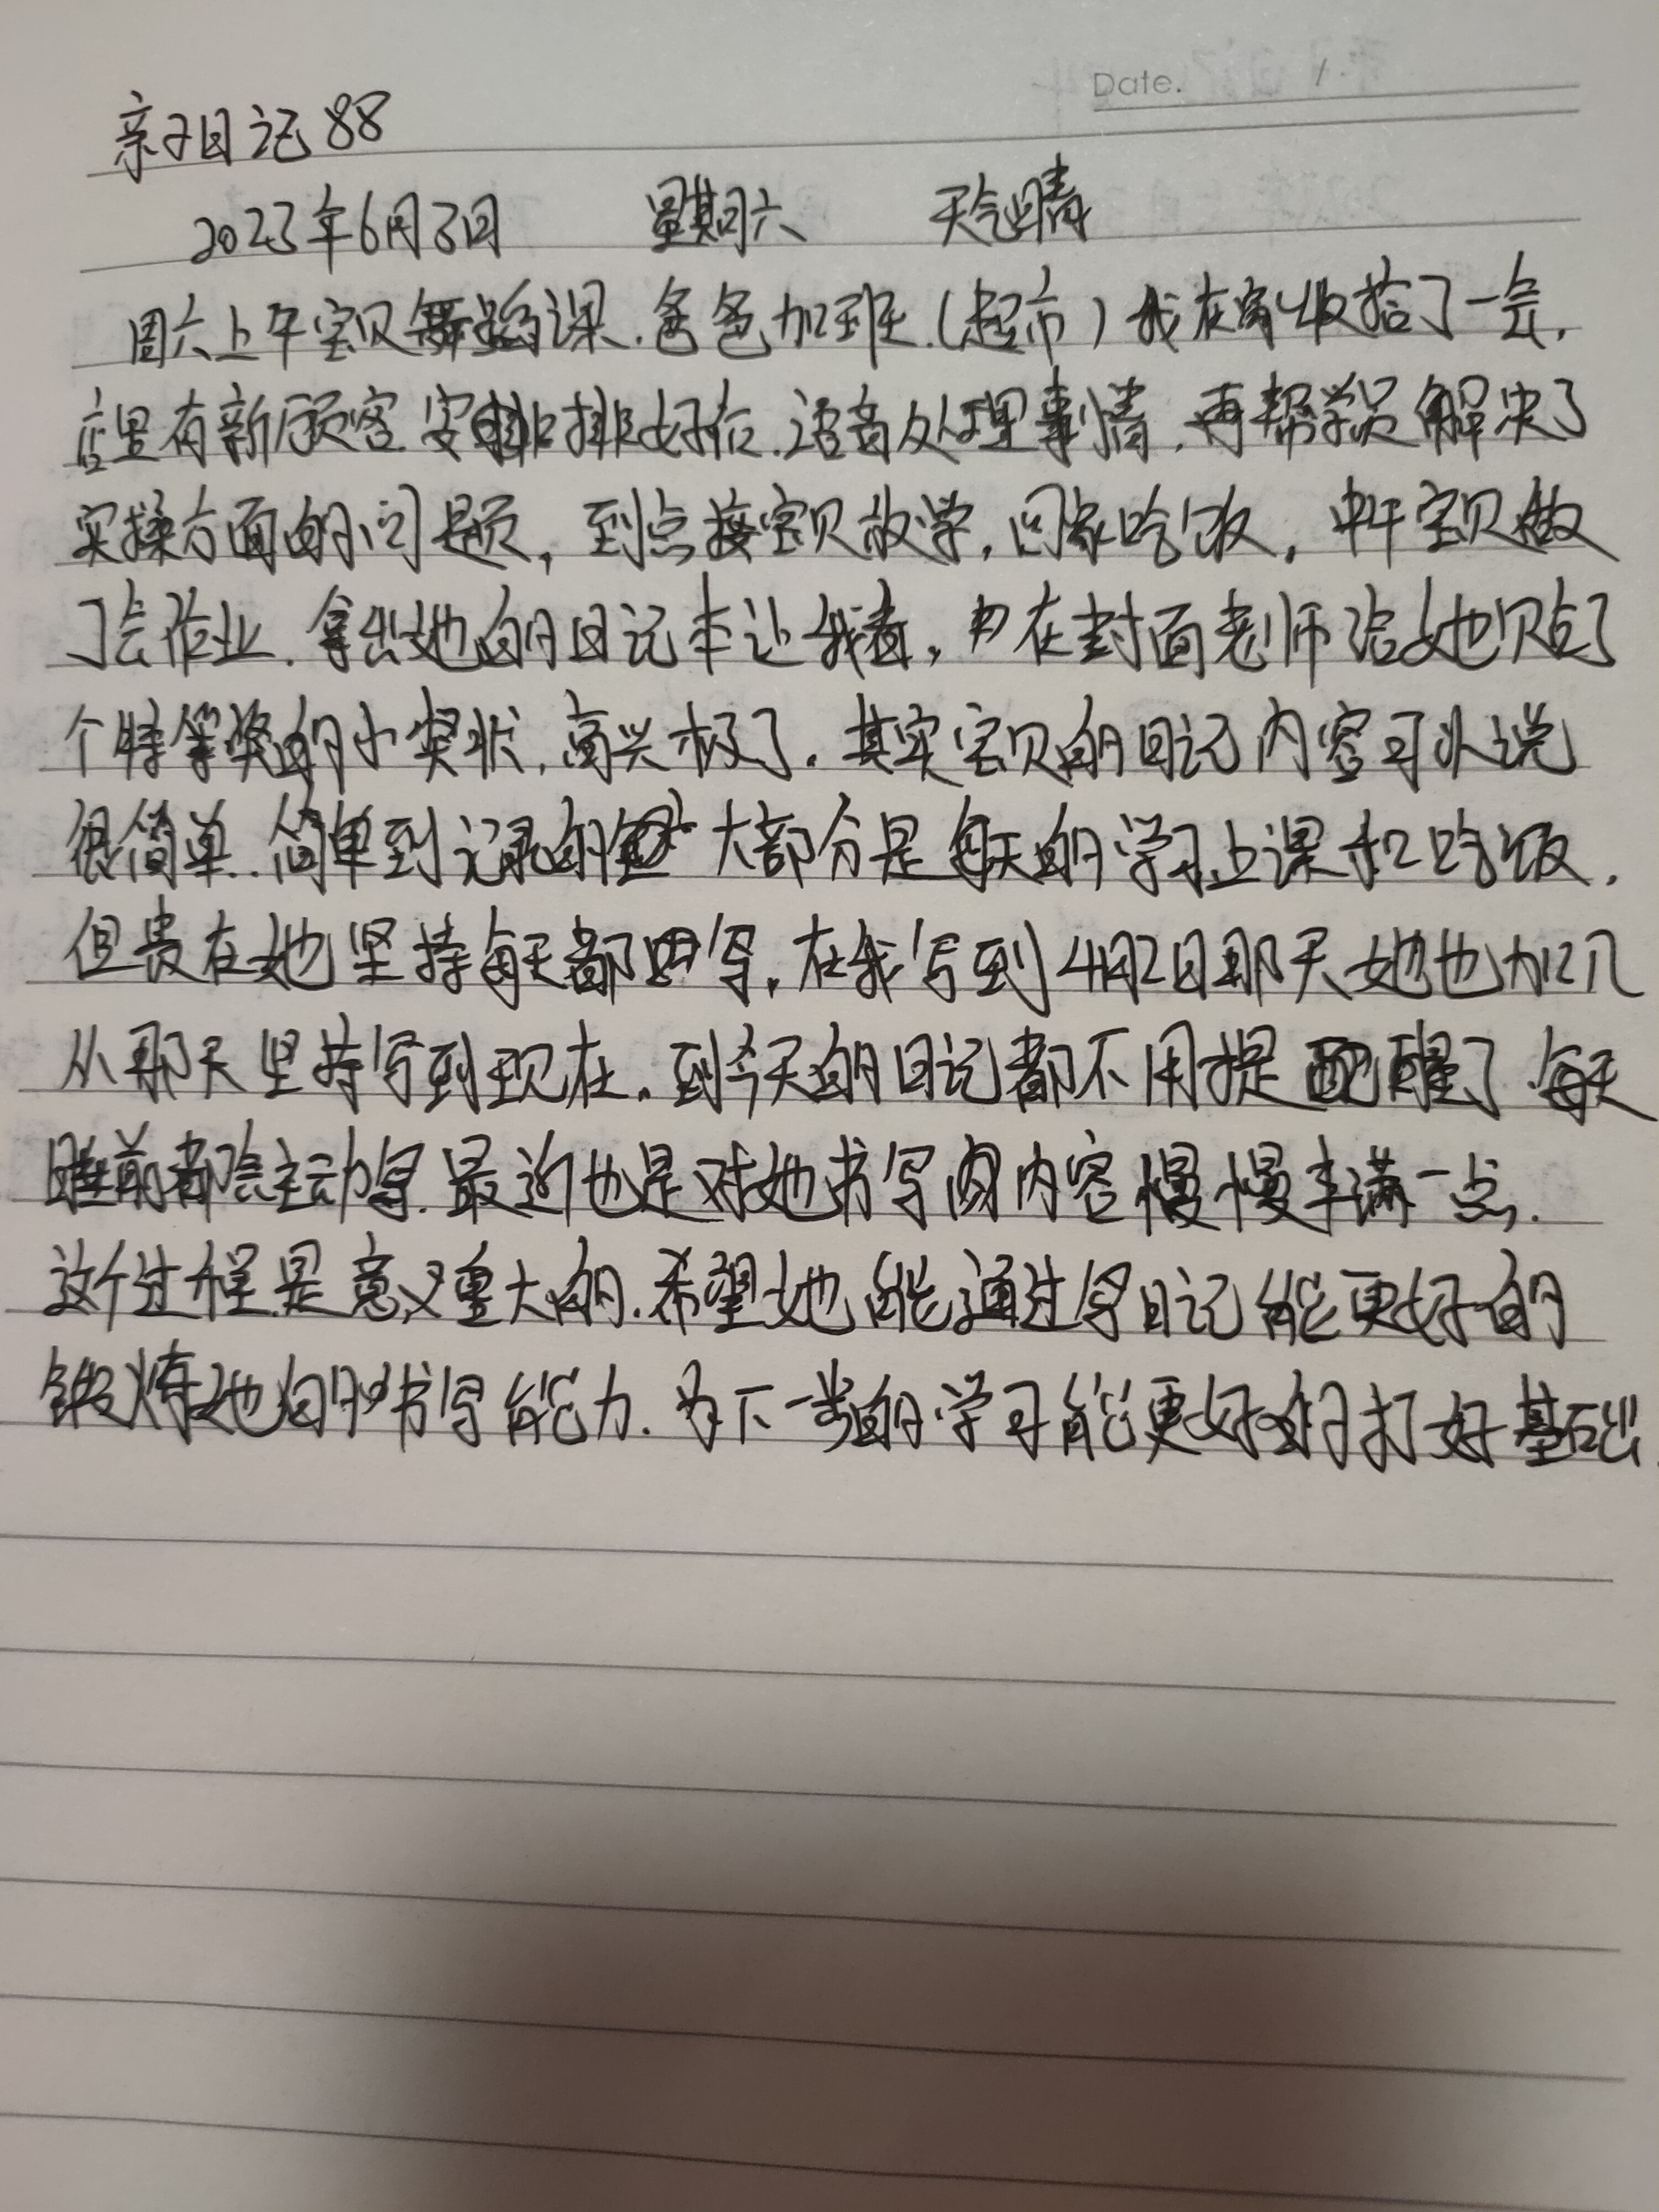 Date.
亲子日记88
2023年6月3日 星期六 天气晴
周六上午宝贝舞蹈课.爸爸加班.(超市)我在家收拾了一会,
店里有新顾客.安排好后.语音处理事情.再帮学员解决了
实操方面的问题,到点接宝贝放学,回家吃饭,中午宝贝做
了会作业.拿出她的日记本让我看,在封面老师给她贴了
个特等奖的小奖状,高兴极了.其实宝贝的日记内容可以说
很简单.简单到记录的大部分是每天的学习上课和吃饭.
但贵在她坚持每天都写,在我写到4月2日那天她也加入
从那天坚持写到现在.到今天的日记都不用提醒了.每天
睡前都会主动写.最近也是对她书写内容慢慢丰满一点.
这个过程是意义重大的.希望她能通过写日记能更好的
锻炼她的书写能力.为下一步的学习能更好的打好基础.